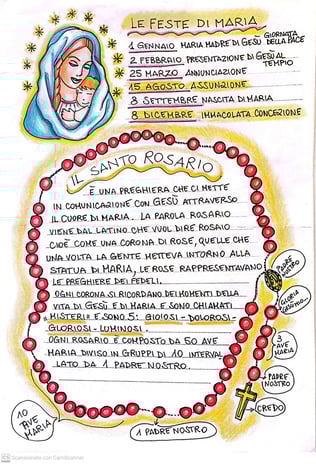 LE FESTE DI MARIA
1 GENNAIO MARIA MADRE DI GESÙ GIORNATA DELLA PACE
2 FEBBRAIO PRESENTAZIONE DI GESÙ AL TEMPIO
25 MARZO ANNUNCIAZIONE
15 AGOSTO ASSUNZIONE
8 SETTEMBRE NASCITA DI MARIA
8 DICEMBRE IMMACOLATA CONCEZIONE
IL SANTO ROSARIO
È UNA PREGHIERA CHE CI METTE
IN COMUNICAZIONE CON GESÙ ATTRAVERSO
IL CUORE DI MARIA. LA PAROLA ROSARIO
VIENE DAL LATINO CHE VUOL DIRE ROSAIO
CIOÈ COME UNA CORONA DI ROSE, QUELLE CHE
UNA VOLTA LA GENTE METTEVA INTORNO ALLA
STATUA DI MARIA, LE ROSE RAPPRESENTAVANO
LE PREGHIERE DEI FEDELI.
OGNI CORONA SI RICORDANO DEI MOMENTI DELLA
VITA DI GESÙ E DI MARIA E SONO CHIAMATI
"MISTERI" E SONO 5: GIOIOSI - DOLOROSI -
GLORIOSI - LUMINOSI.
OGNI ROSARIO È COMPOSTO DA 50 AVE
MARIA DIVISO IN GRUPPI DI 10 INTERVAL
LATO DA 1 PADRE NOSTRO.
PADRE NOSTRO
GLORIA
3 AVE MARIA
PADRE NOSTRO
CREDO
10 AVE MARIA
1 PADRE NOSTRO
CS Scansionato con CamScanner